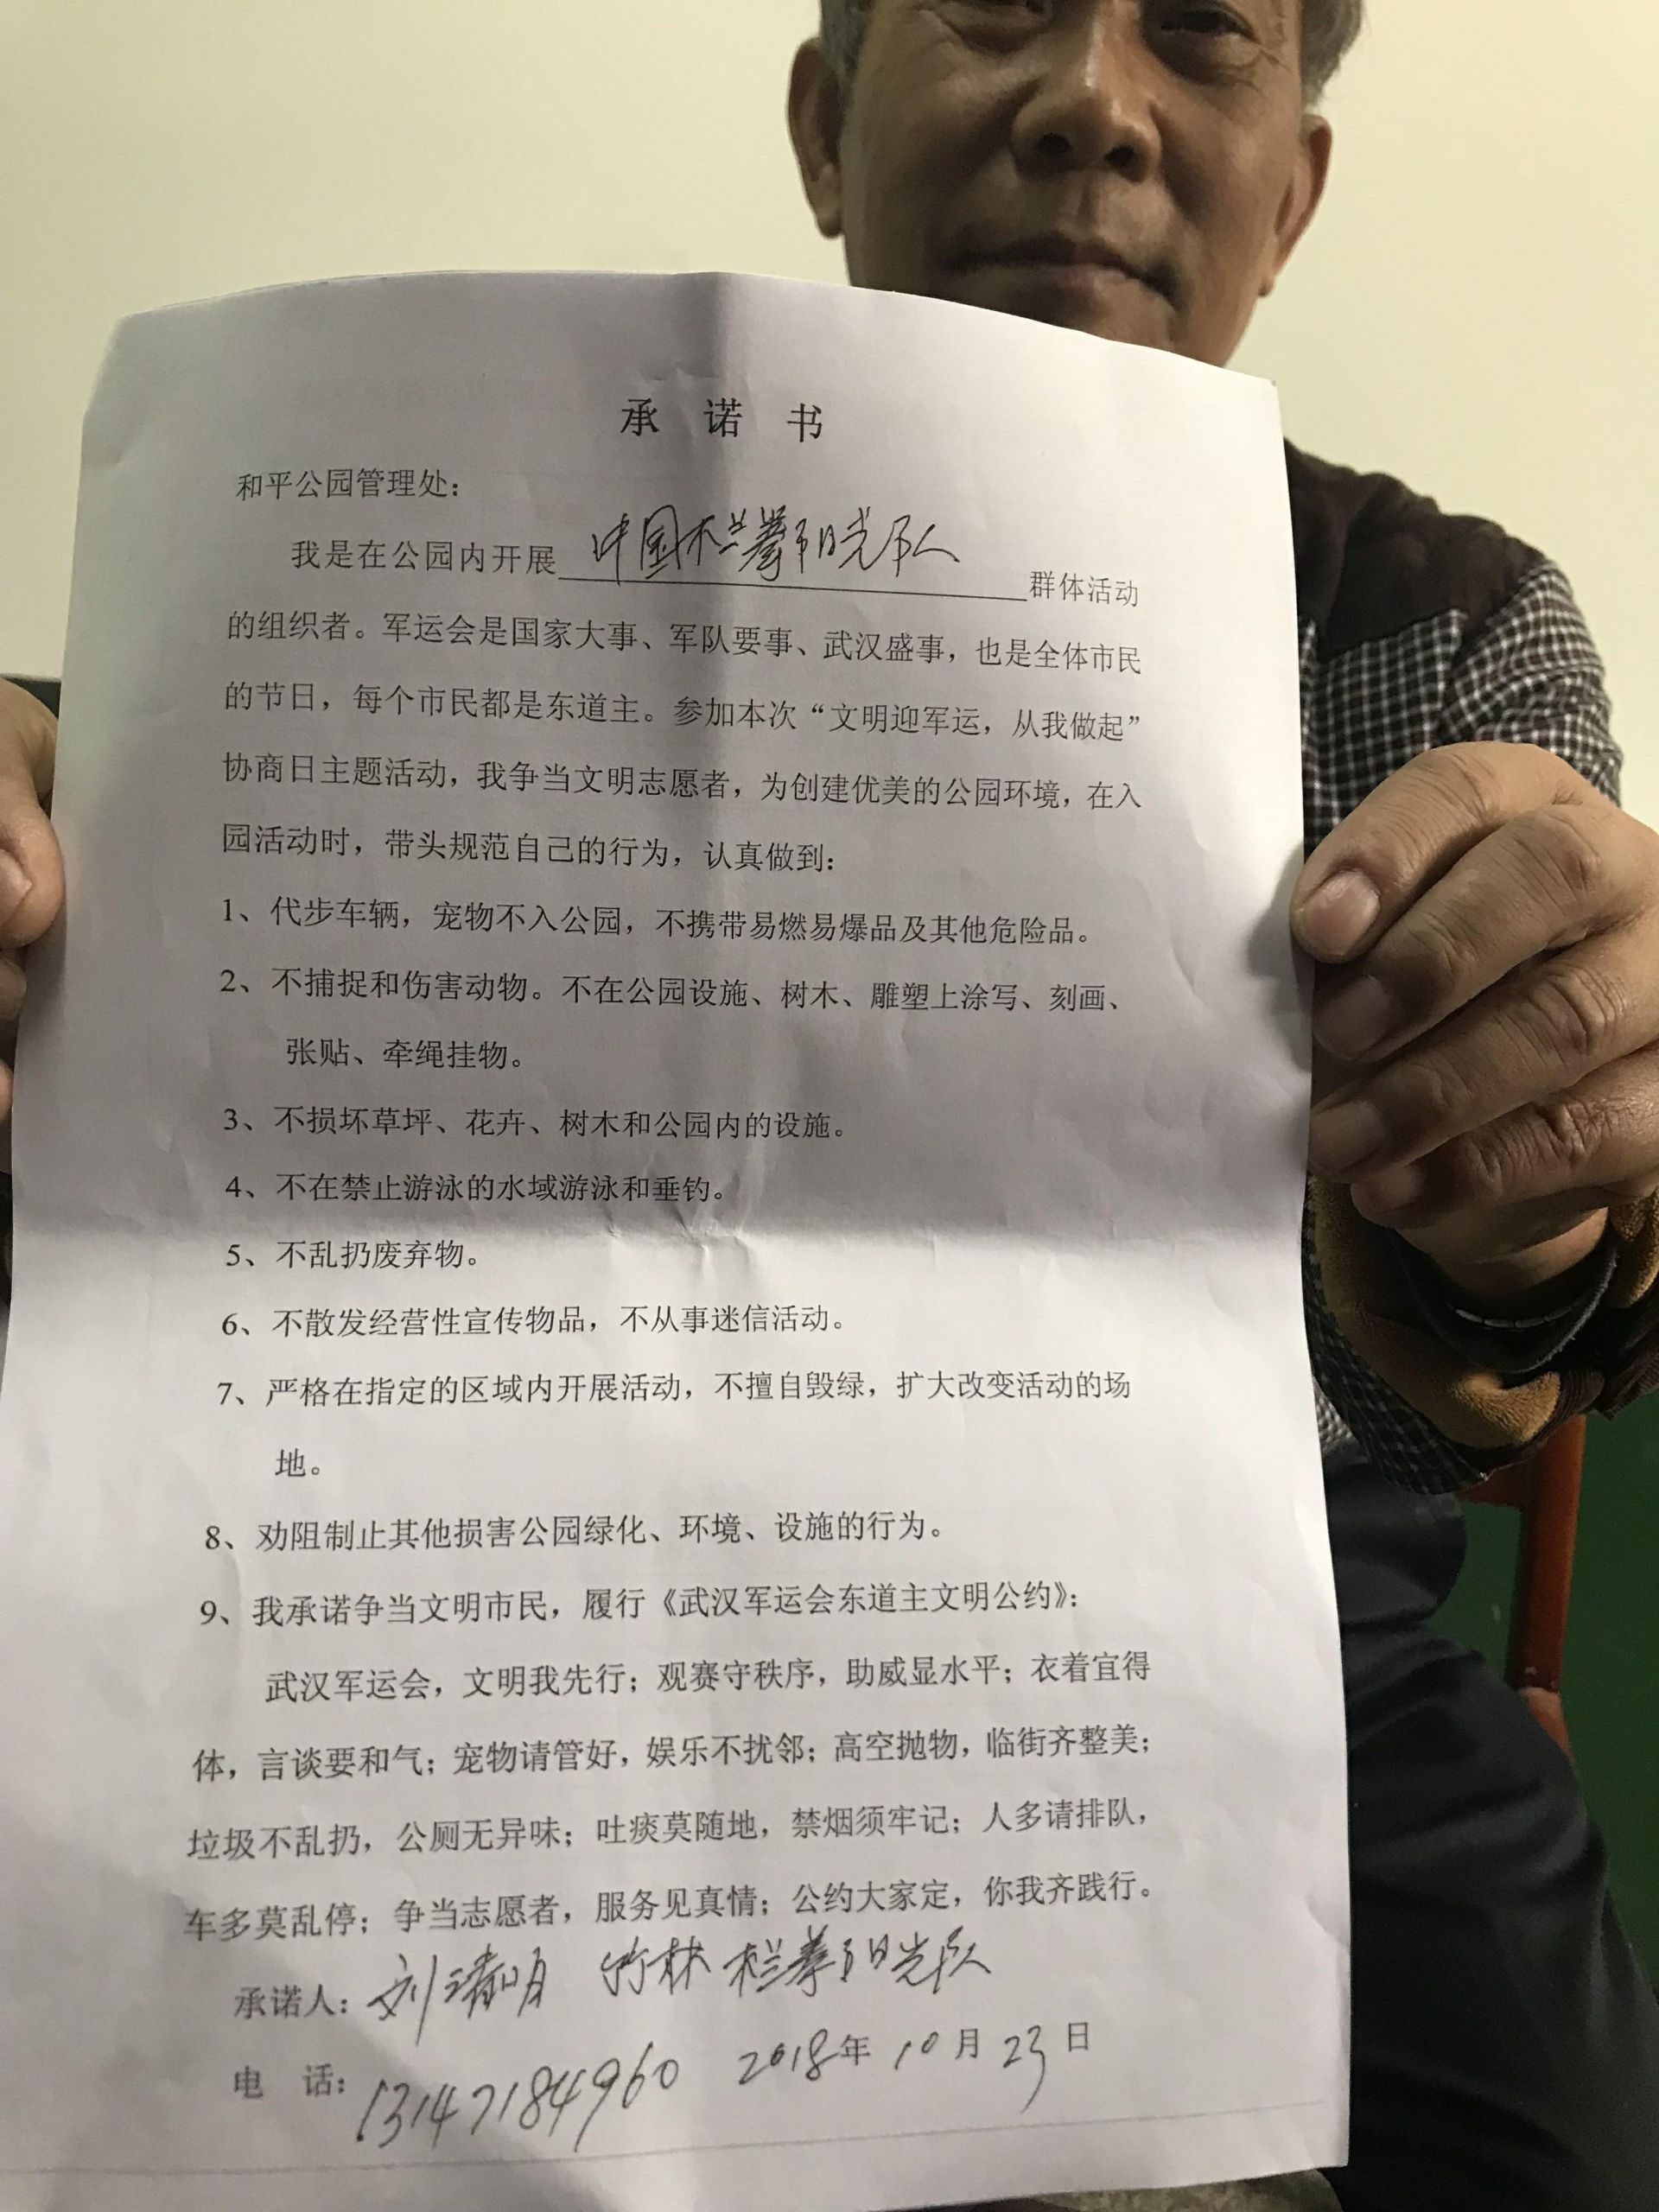 承 诺 书
和平公园管理处：
我是在公园内开展 中国木兰拳阳光队 群体活动
的组织者。军运会是国家大事、军队要事、武汉盛事，也是全体市民
的节日，每个市民都是东道主。参加本次“文明迎军运，从我做起”
协商日主题活动，我争当文明志愿者，为创建优美的公园环境，在入
园活动时，带头规范自己的行为，认真做到：
1、代步车辆，宠物不入公园，不携带易燃易爆品及其他危险品。
2、不捕捉和伤害动物。不在公园设施、树木、雕塑上涂写、刻画、
张贴、牵绳挂物。
3、不损坏草坪、花卉、树木和公园内的设施。
4、不在禁止游泳的水域游泳和垂钓。
5、不乱扔废弃物。
6、不散发经营性宣传物品，不从事迷信活动。
7、严格在指定的区域内开展活动，不擅自毁绿，扩大改变活动的场
地。
8、劝阻制止其他损害公园绿化、环境、设施的行为。
9、我承诺争当文明市民，履行《武汉军运会东道主文明公约》：
武汉军运会，文明我先行；观赛守秩序，助威显水平；衣着宜得
体，言谈要和气；宠物请管好，娱乐不扰邻；高空抛物，临街齐整美；
垃圾不乱扔，公厕无异味；吐痰莫随地，禁烟须牢记；人多请排队，
车多莫乱停；争当志愿者，服务见真情；公约大家定，你我齐践行。
承诺人：刘清明 竹林 栏拳阳光队
电 话：13147184960 2018年10月23日